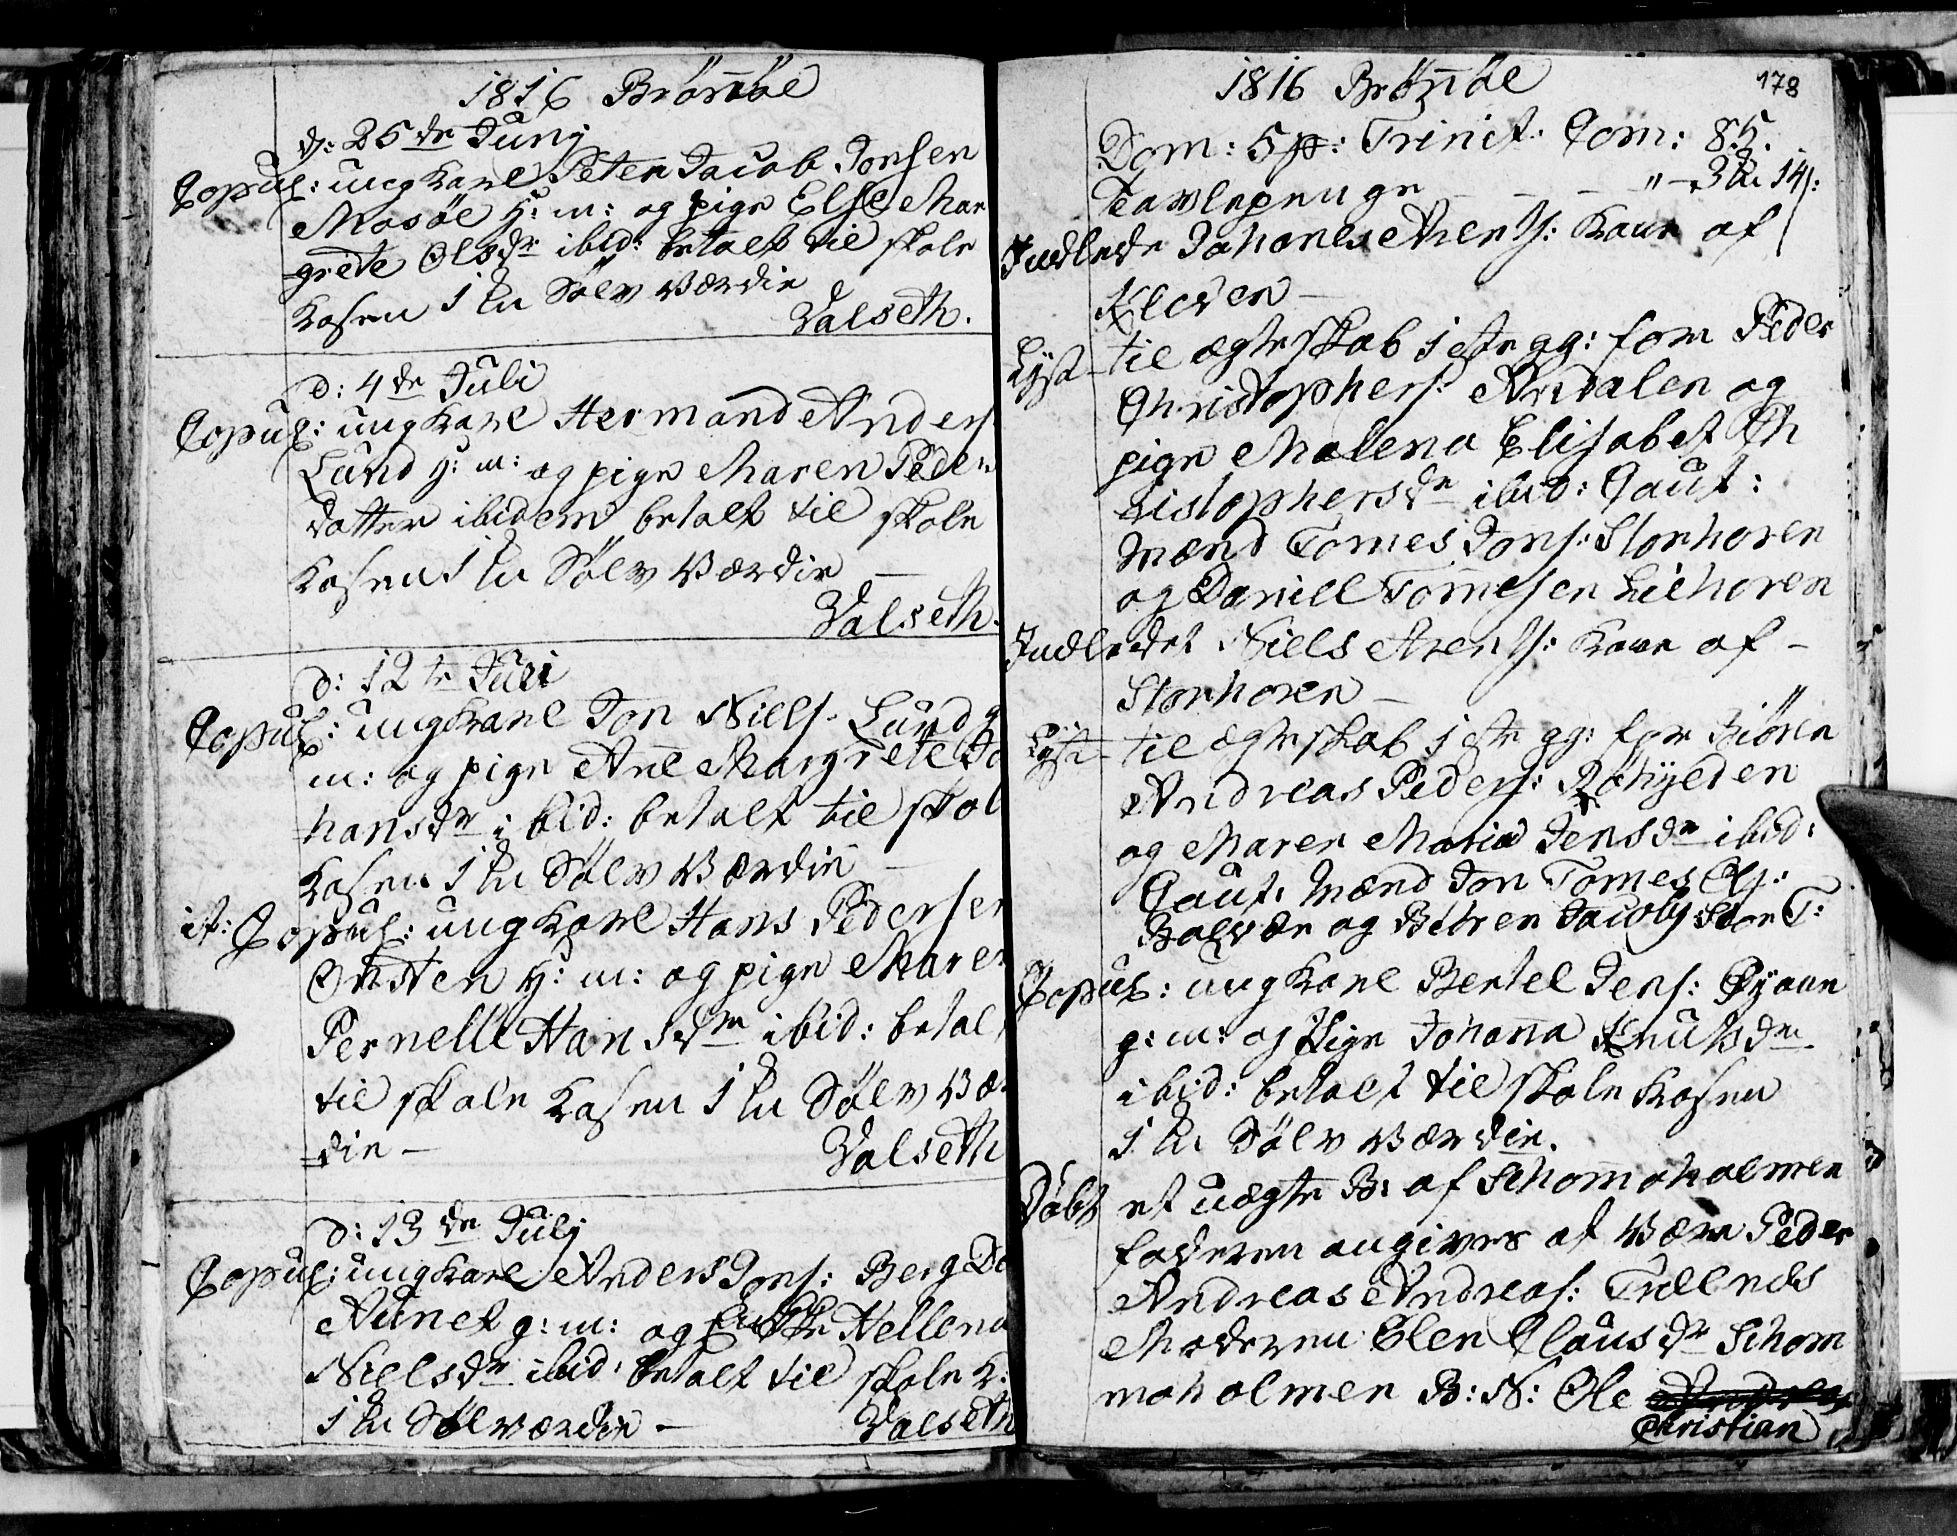 1816 Brönnöe
d: 25de Junj
Copul: ungkarl Peter Jacob Jonsen
Mosöe h: m: og pige Else Mar
grete Olsdr ibid: betalt til skole
Kasen 1 Sölv Værdie
Valseth.
d: 4de Juli
Copul: ungkarl Hermand Anders
Lund h: m: og pige Maren Peders
datter ibidem betalt til skole
Kasen 1 Sölv Værdie
Valseth.
d: 12te Juli
Copul: ungkarl Jon Niels. Lund g
m: og pige Ane Margrete Jo
hansdr ibid: betalt til skol
Kasen 1 Sölv Værdie
it: Copul: ungkarl Hans Pedersen
h: m: og pige Maren
Pernelle Hansdr ibid: betal
til skole Kasen 1 Sölv Vær
die
Valseth
d: 13de Julj
Copul: ungkarl Anders Jons: Berg
Aunet g: m: og Enke Hellena
Nielsdr ibid: betalt til skole K:
1 Sölværdie
Valseth
1816 Brönnöe
178
Dom: 5 p: Trinit. Com: 85.
Tavlepenge " - 3 14
Indlede Johanes Arents: Kone af
Kleven
Lyst til ægteskab 1ste gg: for Peder
Christophers: Aridalen og
pige Malena Elisabet Ch
ristophersdr ibid: Caut:
Mænd Tomes Jons: Storhoren
og Daniel Tomesen Lilhoren
Indledet Niels Arents: Kone af
Storhoren
Lyst til ægteskab 1ste gg: for Biörn
Andreas Peders: Röhyeden
og Maren Maria Jensdr ibid:
Caut. Mænd Jon Tomes Ols:
Bolvær og Biören Jacobs Stor T:
Copul: ungkarl Bertel Jens: Öyaun
g: m: og Pige Johanna Knutsdr
ibid: betalt til skole Kasen
1 Sölv Værdie.
Döbt et uægte B: af Schomoholmen
faderen angives at Være Peder
Andreas Andreas: Tilrends
Moderen Elen Clausdr Schom
moholmen B: N: Ole
Christian